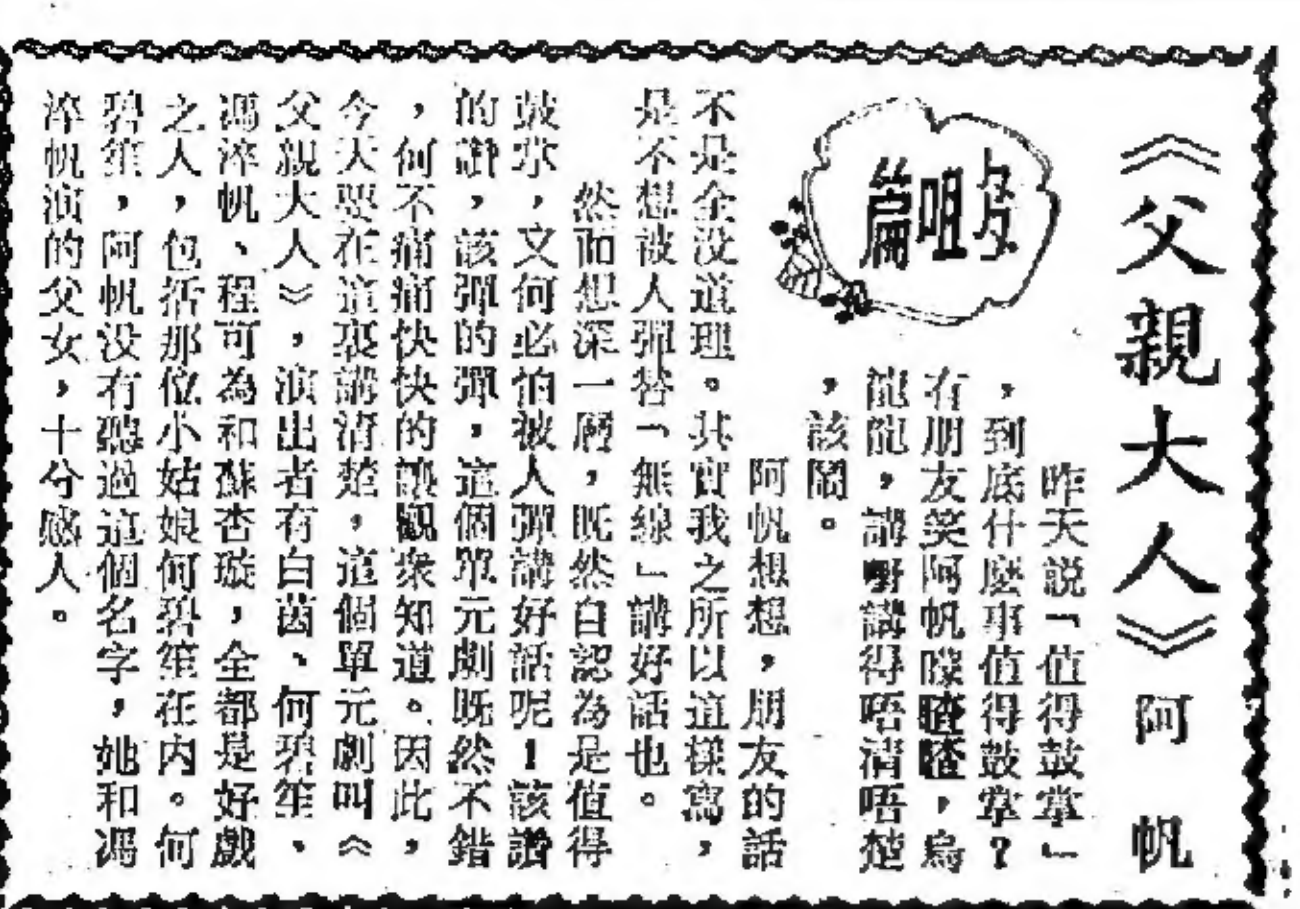 《父親大人》阿帆
皮咀篇
昨天説「值得鼓掌」
，到底什麼事值得鼓掌？
有朋友笑阿帆矇瞳瞳，烏
龍龍，講嘢講得唔清唔楚
，該鬧。
阿帆想想，朋友的話
不是全没道理。其實我之所以這樣寫，
是不想被人彈替「無線」講好話也。
然而想深一層，既然自認為是值得
鼓掌，又何必怕被人彈講好話呢！該讚
的讚，該彈的彈，這個單元劇既然不錯
，何不痛痛快快的讓觀衆知道。因此，
今天要在這裏講清楚，這個單元劇叫《
父親大人》，演出者有白茵、何碧笙、
馮淬帆、程可為和蘇杏璇，全都是好戲
之人，包括那位小姑娘何碧笙在内。何
碧笙，阿帆没有聽過這個名字，她和馮
淬帆演的父女，十分感人。